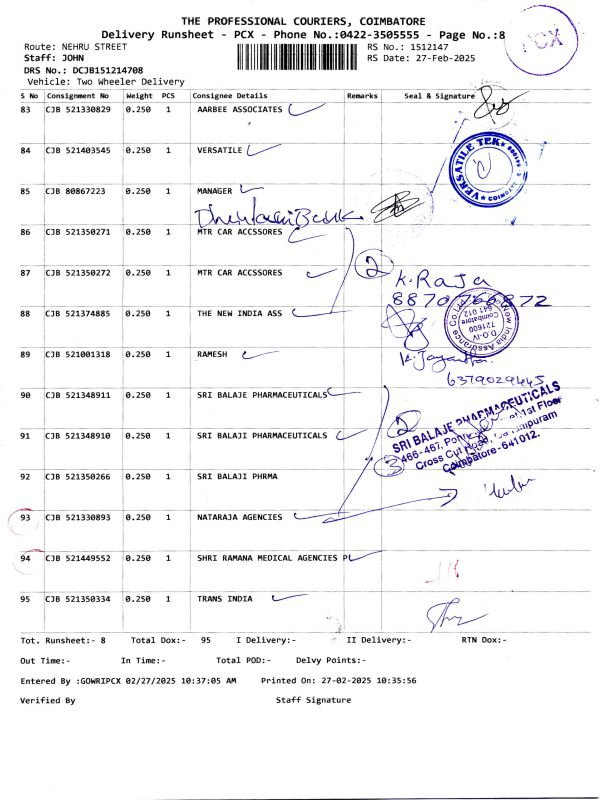 THE PROFESSIONAL COURIERS, COIMBATORE
Delivery Runsheet - PCX - Phone No.:0422-3505555 - Page No.:8
PCX
Route: NEHRU STREET
RS No.: 1512147
Staff: JOHN
RS Date: 27-Feb-2025
DRS No.: DCJB151214708
Vehicle: Two Wheeler Delivery
S No Consignment No Weight PCS Consignee Details Remarks Seal & Signature
83 CJB 521330829 0.250 1 AARBEE ASSOCIATES
84 CJB 521403545 0.250 1 VERSATILE
VERSATILE TEK
COIMBATORE
85 CJB 80867223 0.250 1 MANAGER
Dhanlaxmi Bank
86 CJB 521350271 0.250 1 MTR CAR ACCSSORES
2
87 CJB 521350272 0.250 1 MTR CAR ACCSSORES
K. Raja
8870766872
88 CJB 521374885 0.250 1 THE NEW INDIA ASS
New India Assurance Co
D.O-IV
721600
Coimbatore
641 012
89 CJB 521001318 0.250 1 RAMESH
K. Jayantha
6379029445
90 CJB 521348911 0.250 1 SRI BALAJE PHARMACEUTICALS
2
SRI BALAJE PHARMACEUTICALS
91 CJB 521348910 0.250 1 SRI BALAJI PHARMACEUTICALS
466-467, 1st Floor
3
Cross Cut Road,
Coimbatore-641012.
92 CJB 521350266 0.250 1 SRI BALAJI PHRMA
93 CJB 521330893 0.250 1 NATARAJA AGENCIES
94 CJB 521449552 0.250 1 SHRI RAMANA MEDICAL AGENCIES P
95 CJB 521350334 0.250 1 TRANS INDIA
Tot. Runsheet:- 8 Total Dox:- 95 I Delivery:- II Delivery:- RTN Dox:-
Out Time:- In Time:- Total POD:- Delvy Points:-
Entered By :GOWRIPCX 02/27/2025 10:37:05 AM Printed On: 27-02-2025 10:35:56
Verified By Staff Signature